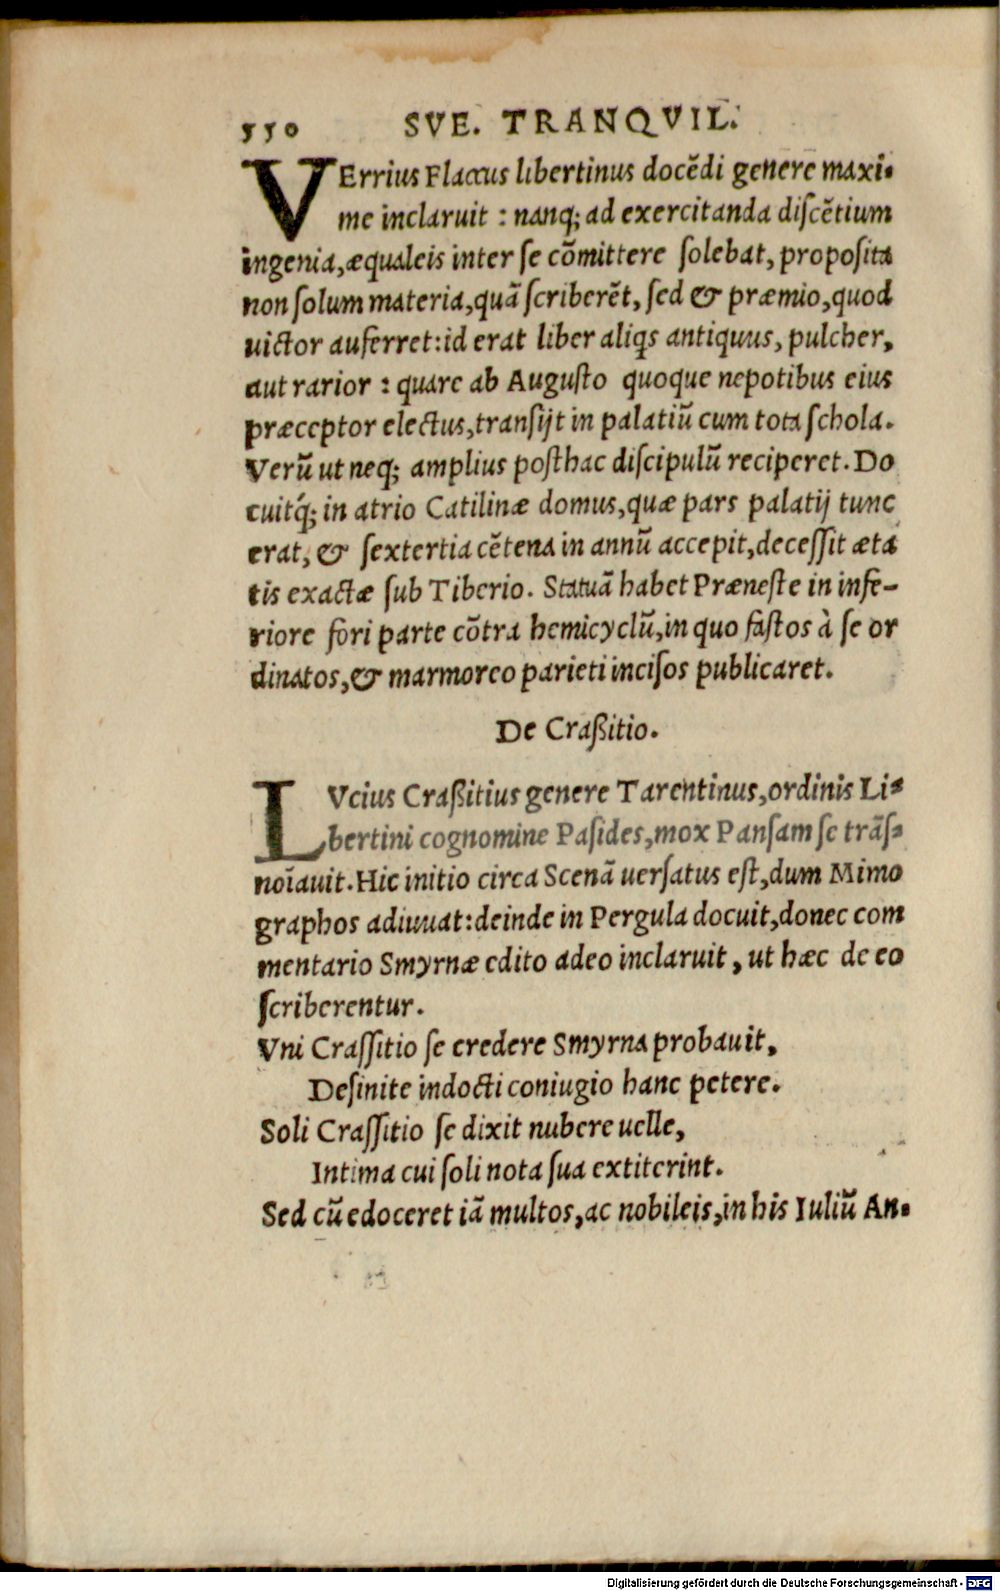 550 SVE. TRANQVIL.
VErrius Flaccus libertinus docēdi genere maxi-
me inclaruit : nanq; ad exercitanda diſcētium
ingenia, æqualeis inter ſe cōmittere ſolebat, propoſita
non ſolum materia, quā ſcriberēt, ſed & præmio, quod
uictor auferret: id erat liber aliqs antiquus, pulcher,
aut rarior : quare ab Auguſto quoque nepotibus eius
præceptor electus, tranſijt in palatiū cum tota ſchola.
Verū ut neq; amplius poſthac diſcipulū reciperet. Do
cuitq́; in atrio Catilinæ domus, quæ pars palatij tunc
erat, & ſextertia cētena in annū accepit, deceſſit æta
tis exactæ ſub Tiberio. Statuā habet Præneſte in infe-
riore fori parte cōtra hemicyclū, in quo faſtos à ſe or
dinatos, & marmoreo parieti inciſos publicaret.
De Craßitio.
LVcius Craßitius genere Tarentinus, ordinis Li-
bertini cognomine Paſides, mox Panſam ſe trāſ-
noīauit. Hic initio circa Scenā uerſatus eſt, dum Mimo
graphos adiuuat: deinde in Pergula docuit, donec com
mentario Smyrnæ edito adeo inclaruit, ut hæc de eo
ſcriberentur.
Vni Craſſitio ſe credere Smyrna probauit,
Deſinite indocti coniugio hanc petere.
Soli Craſſitio ſe dixit nubere uelle,
Intima cui ſoli nota ſua extiterint.
Sed cū edoceret iā multos, ac nobileis, in his Iuliū An-
Digitalisierung gefördert durch die Deutsche Forschungsgemeinschaft - DFG